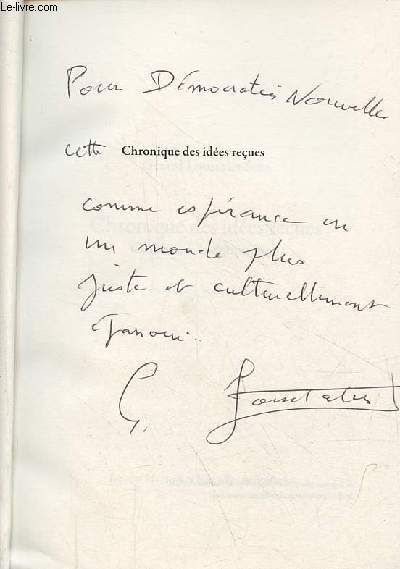 Le-livre.com
Pour Démocratie Nouvelle
cette Chronique des idées reçues
comme espérance en
un monde plus
juste et culturellement
épanoui.
G.